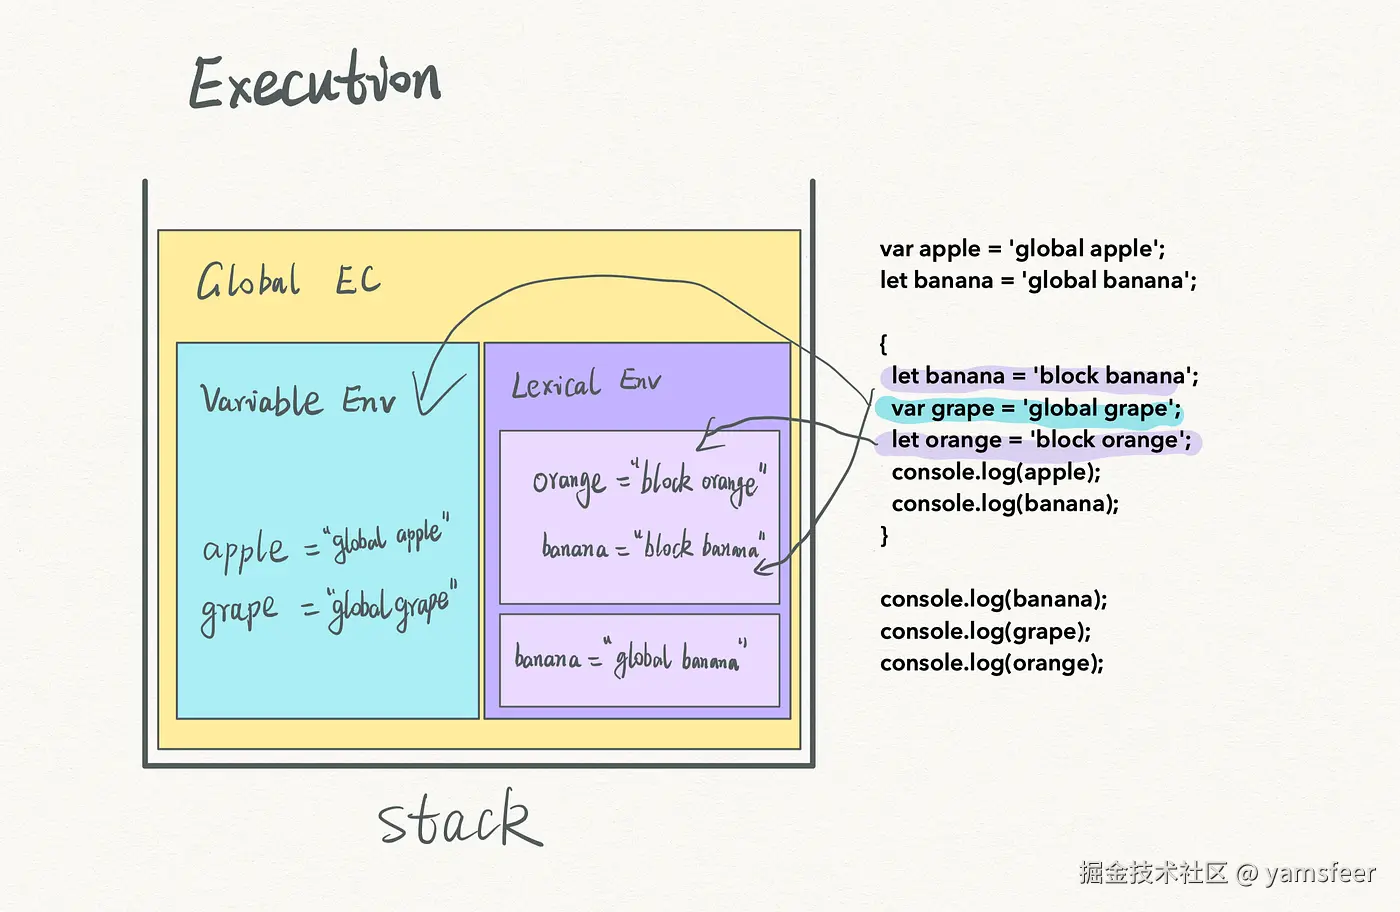 Execution
Global EC
Variable Env
apple = "global apple"
grape = "global grape"
Lexical Env
orange = "block orange"
banana = "block banana"
banana = "global banana"
stack
var apple = 'global apple';
let banana = 'global banana';
{
let banana = 'block banana';
var grape = 'global grape';
let orange = 'block orange';
console.log(apple);
console.log(banana);
}
console.log(banana);
console.log(grape);
console.log(orange);
掘金技术社区 @ yamsfeer